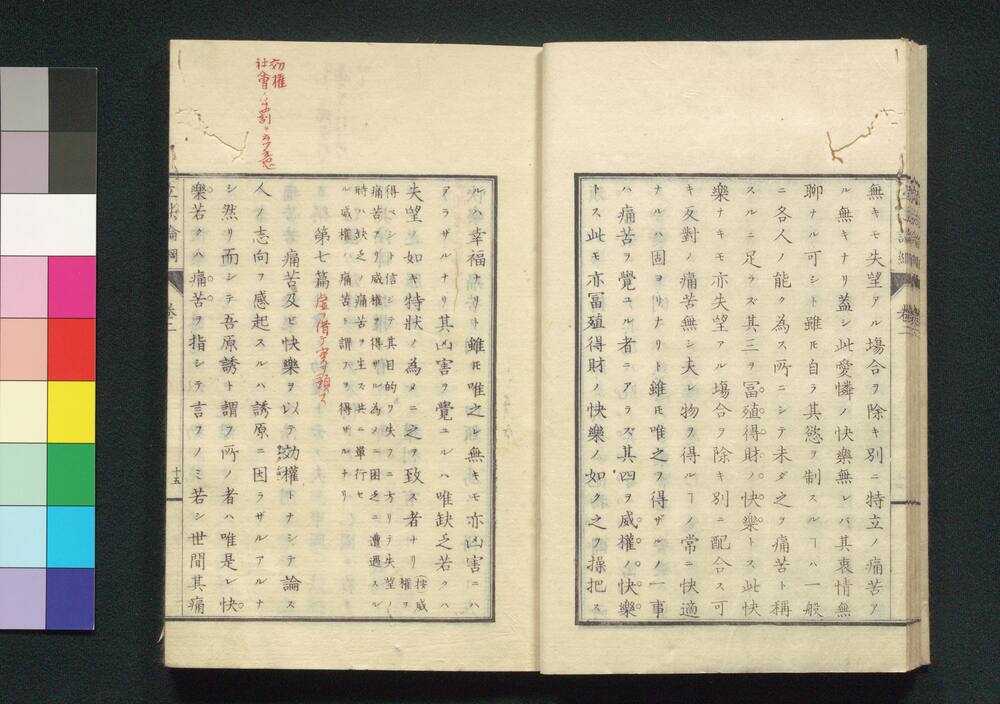 無キモ失望アル塲合ヲ除キ別ニ特立ノ痛苦ア
ル無キナリ蓋シ此愛憐ノ快樂無レバ其衷情無
聊ナル可シト雖モ自ラ其慾ヲ制スルヿハ一般
ニ各人ノ能ク為ス所ニシテ未ダ之ヲ痛苦ト稱
スルニ足ラズ其三ヲ冨殖得財ノ快樂トス此快
樂ナキモ亦失望アル塲合ヲ除キ別ニ配合ス可
キ反對ノ痛苦無シ夫レ物ヲ得ルヿノ常ニ快適
ナルハ固ヨリナリト雖𪜈唯之ヲ得ザルノ一事
ハ痛苦ヲ覺ユル者ニアラズ其四ヲ威權ノ快樂
トス此モ亦冨殖得財ノ快樂ノ如ク之ヲ操把ス
ルハ幸福ナリト雖𪜈唯之レ無キモ亦凶害ニハ
アラザルナリ其凶害ヲ覺ユルハ唯缺乏若クハ
失望ノ如キ特狀ノ為メニ之ヲ致ス者ナリ(按威權ヲ
得ベシト信シテ其目的ヲ失フニ方リテ失望ノ
痛苦アリ威權ヲ得ザル為メニ困乏ニ遭遇スル
時ハ缺乏ノ痛苦ヲ生ス共ニ單行セ
ル威權ハ痛苦ト謂フヲ得ザルナリ
第七篇
痛苦及ビ快樂ヲ以テ効權トナシテ論ス
人ノ志向ヲ感起スルハ誘原ニ因ラザルアルナ
シ然リ而シテ吾原誘ト謂フ所ノ者ハ唯是レ快
樂若クハ痛苦ヲ指シテ言フノミ若シ世間其痛
立法論綱
卷二
十五
効權
社會ノ